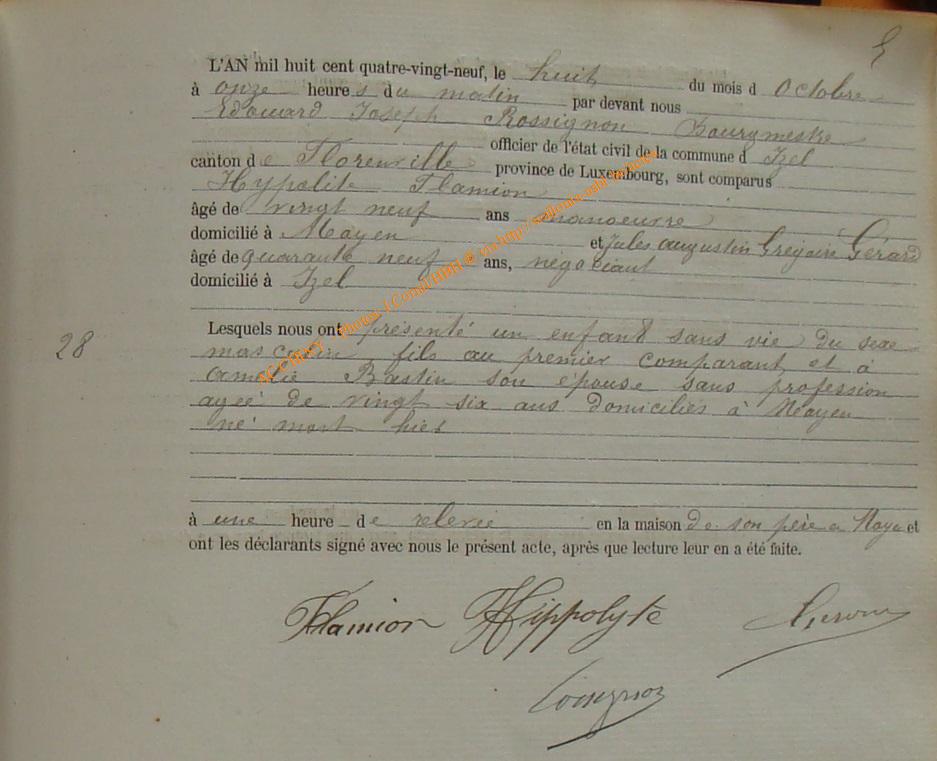 L'AN mil huit cent quatre-vingt-neuf, le huit du mois d Octobre
à onze heures du matin par devant nous
Edouard Joseph Rossignon Bourgmestre
officier de l'état civil de la commune d Izel
canton de Florenville province de Luxembourg, sont comparus
Hypolite Flamion
âgé de vingt neuf ans manoeuvre
domicilié à Moyen et Jules Augustin Grégoire Gérard
âgé de quarante neuf ans, négociant
domicilié à Izel
28
Lesquels nous ont présenté un enfant sans vie du sexe
masculin, fils au premier comparant et à
Amélie Bastin son épouse sans profession
agée de vingt six ans domiciliés à Moyen
né mort hier
à une heure de relevée en la maison de son père a Moyen et
ont les déclarants signé avec nous le présent acte, après que lecture leur en a été faite.
Flamion Hippolyte